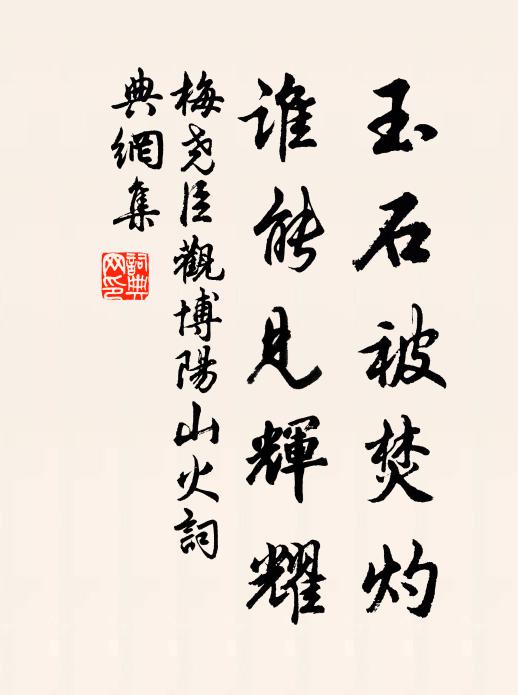 玉石被焚灼
谁能見輝耀
梅尧臣觀博陽山火詞
典網集
詞典
网印